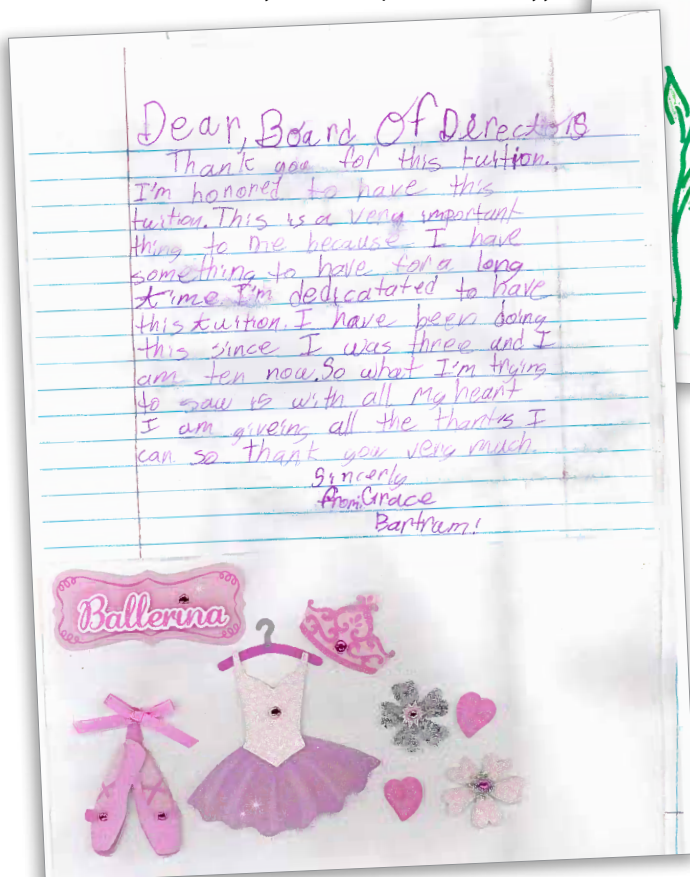 Dear, Board Of Directors
Thank you for this tuition.
I'm honored to have this
tuition. This is a very important
thing to me because I have
something to have for a long
time. I'm dedicatated to have
this tuition. I have been doing
this since I was three and I
am ten now. So what I'm trying
to saw is with all my heart
I am giveing all the thanks I
can so thank you very much.
Sincerly
from: Grace
Bartram!
Ballerina